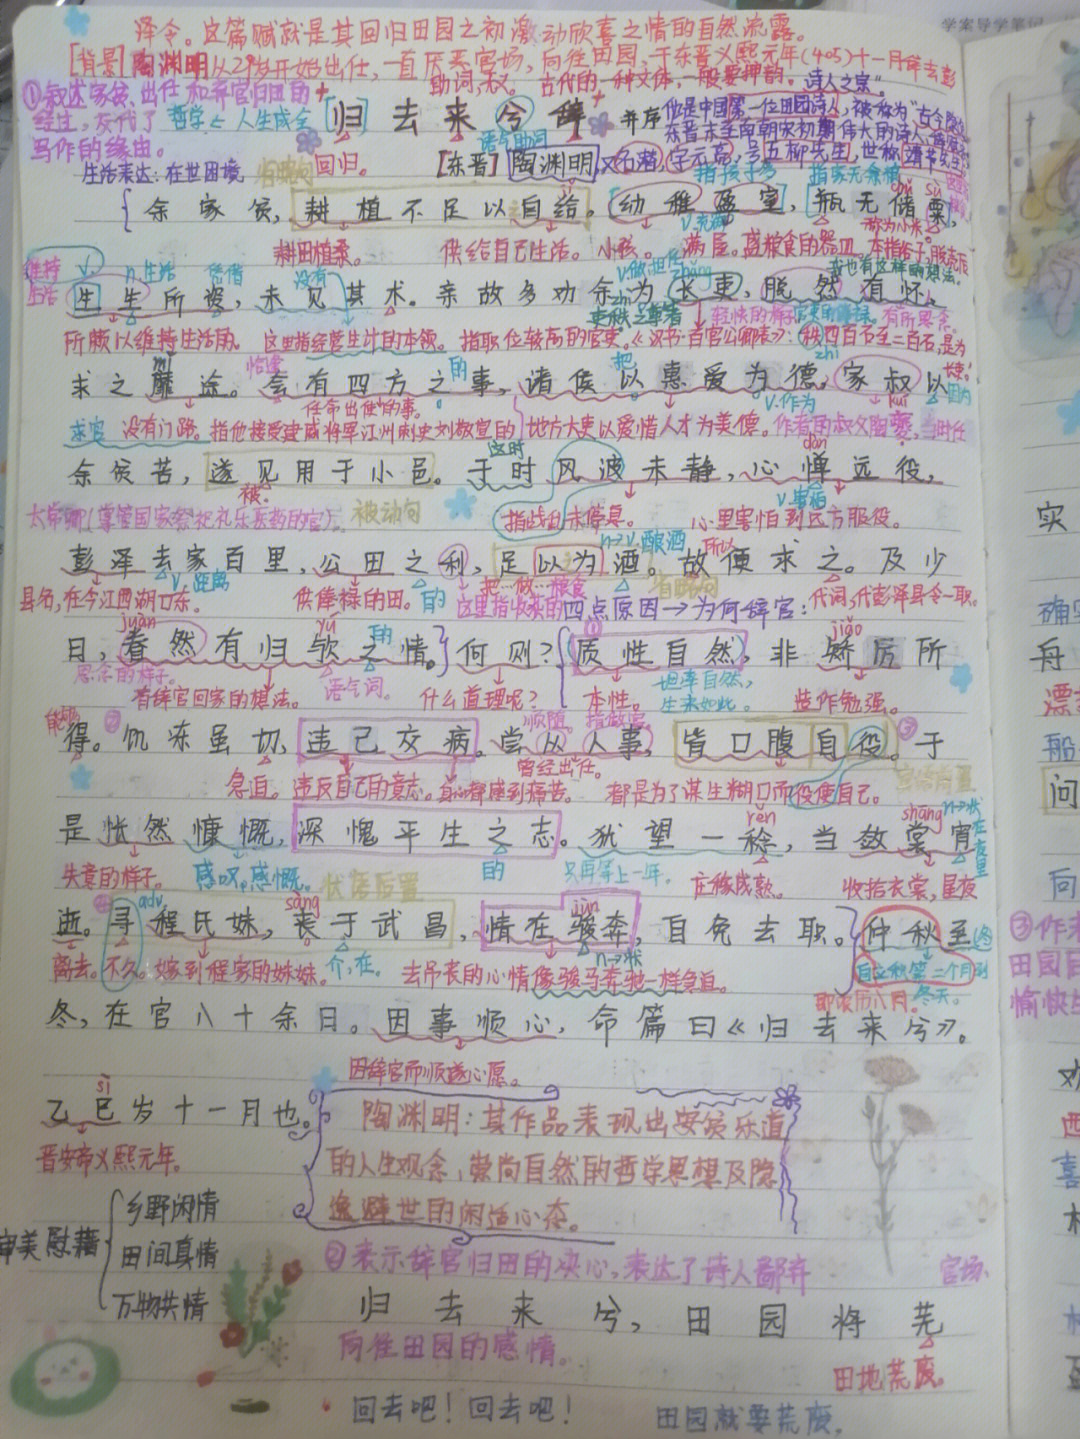 学案导学笔记
泽令。这篇赋就是其回归田园之初激动欣喜之情的自然流露。
[背景]陶渊明从29岁开始出仕,一直厌恶官场,向往田园,于东晋义熙元年(405)十一月辞去彭
助词,无义。 古代的一种文体,一般要押韵。 "诗人之宗"。
①叙述家贫、出仕和弃官归田的
经过,交代了 哲学< 人生成全 [归]去来兮辞 并序 他是中国第一位田园诗人,被称为"古今隐逸
写作的缘由。 语气助词 东晋末至南朝宋初期伟大的诗人、辞赋家
生活表达:在世困境 省略句 回归。 [东晋]陶渊明,又名潜,字元亮,号五柳先生,世称靖节先生,
指孩子多 指家无余粮 chǔ sù
余家贫,耕植不足以自给。幼稚盈室,瓶无储粟,
v.充满 称为小米。
耕田植桑。 供给自己生活。 小孩。 满屋。盛粮食的器皿。本指谷子,脱壳后
维持 v. n.生活 凭借 没有 v.做,担任 zhǎng 我也有这样的想法。
生活 生生所资,未见其术。亲故多劝余为长吏,脱然有怀,
所赖以维持生活的。 这里指经营生计的本领。 指职位较高的官吏。《汉书·百官公卿表》:秩四百石至二百石,是为
mǐ 恰逢 的 把 zhi 长吏。
求之靡途。会有四方之事,诸侯以惠爱为德,家叔以
任命出使的事。 v.作为 kuí 因为
求官 没有门路。 指他接受建威将军江州刺史刘敬宣的 地方大吏以爱惜人才为美德。作者的叔父陶夔,当时任
这时 dàn
余贫苦,遂见用于小邑。于时风波未静,心惮远役,
被。 v.害怕
太常卿(掌管国家祭祀礼乐医药的官)。 被动句 指战乱未停息。 心里害怕到远方服役。
彭泽去家百里,公田之利,足以为酒。故便求之。及少
v.距离 n→v.酿酒 所以
县名,在今江西湖口东。 供俸禄的田。 的 把…做…粮食 省略句
这里指收获的 四点原因→为何辞官: 代词,代彭泽县令一职。
juàn yú 的 ① jiǎo
日,眷然有归欤之情。何则?质性自然,非矫厉所
思念的样子。 语气词。 坦率自然,
有辞官回家的想法。 什么道理呢? 本性。 生来如此。 造作勉强。
能够 ② 顺随。 指做官。 ③
得。饥冻虽切,违己交病。尝从人事,皆口腹自役。于
曾经出仕。
急迫。 违反自己的意志。身心都感到痛苦。 都是为了谋生糊口而役使自己。 宾语前置
rěn shāng n→状
是怅然慷慨,深愧平生之志。犹望一稔,当敛裳宵
的 在夜里
失意的样子。 感叹,感慨。 状语后置 只再等上一年。 庄稼成熟。 收拾衣裳,星夜
④ adv. sàng jùn
逝。寻程氏妹,丧于武昌,情在骏奔,自免去职。仲秋至
n→状 到
离去。不久。嫁到程家的妹妹。 介,在。 去吊丧的心情像骏马奔驰一样急迫。
冬天。
冬,在官八十余日。因事顺心,命篇曰《归去来兮》。
因辞官而顺遂心愿。
sì
乙巳岁十一月也。
晋安帝义熙元年。
陶渊明:其作品表现出安贫乐道
的人生观念,崇尚自然的哲学思想及隐
逸避世的闲适心态。
审美慰藉
乡野闲情
田间真情
万物共情
②表示辞官归田的决心,表达了诗人鄙弃 官场、
归去来兮,田园将芜
向往田园的感情。 田地荒废。
回去吧!回去吧! 田园就要荒废,
实
确实
舟
漂
船
问
向
③作者
田园
愉快
劝
西
喜